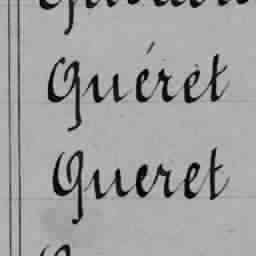 Quéret
Queret